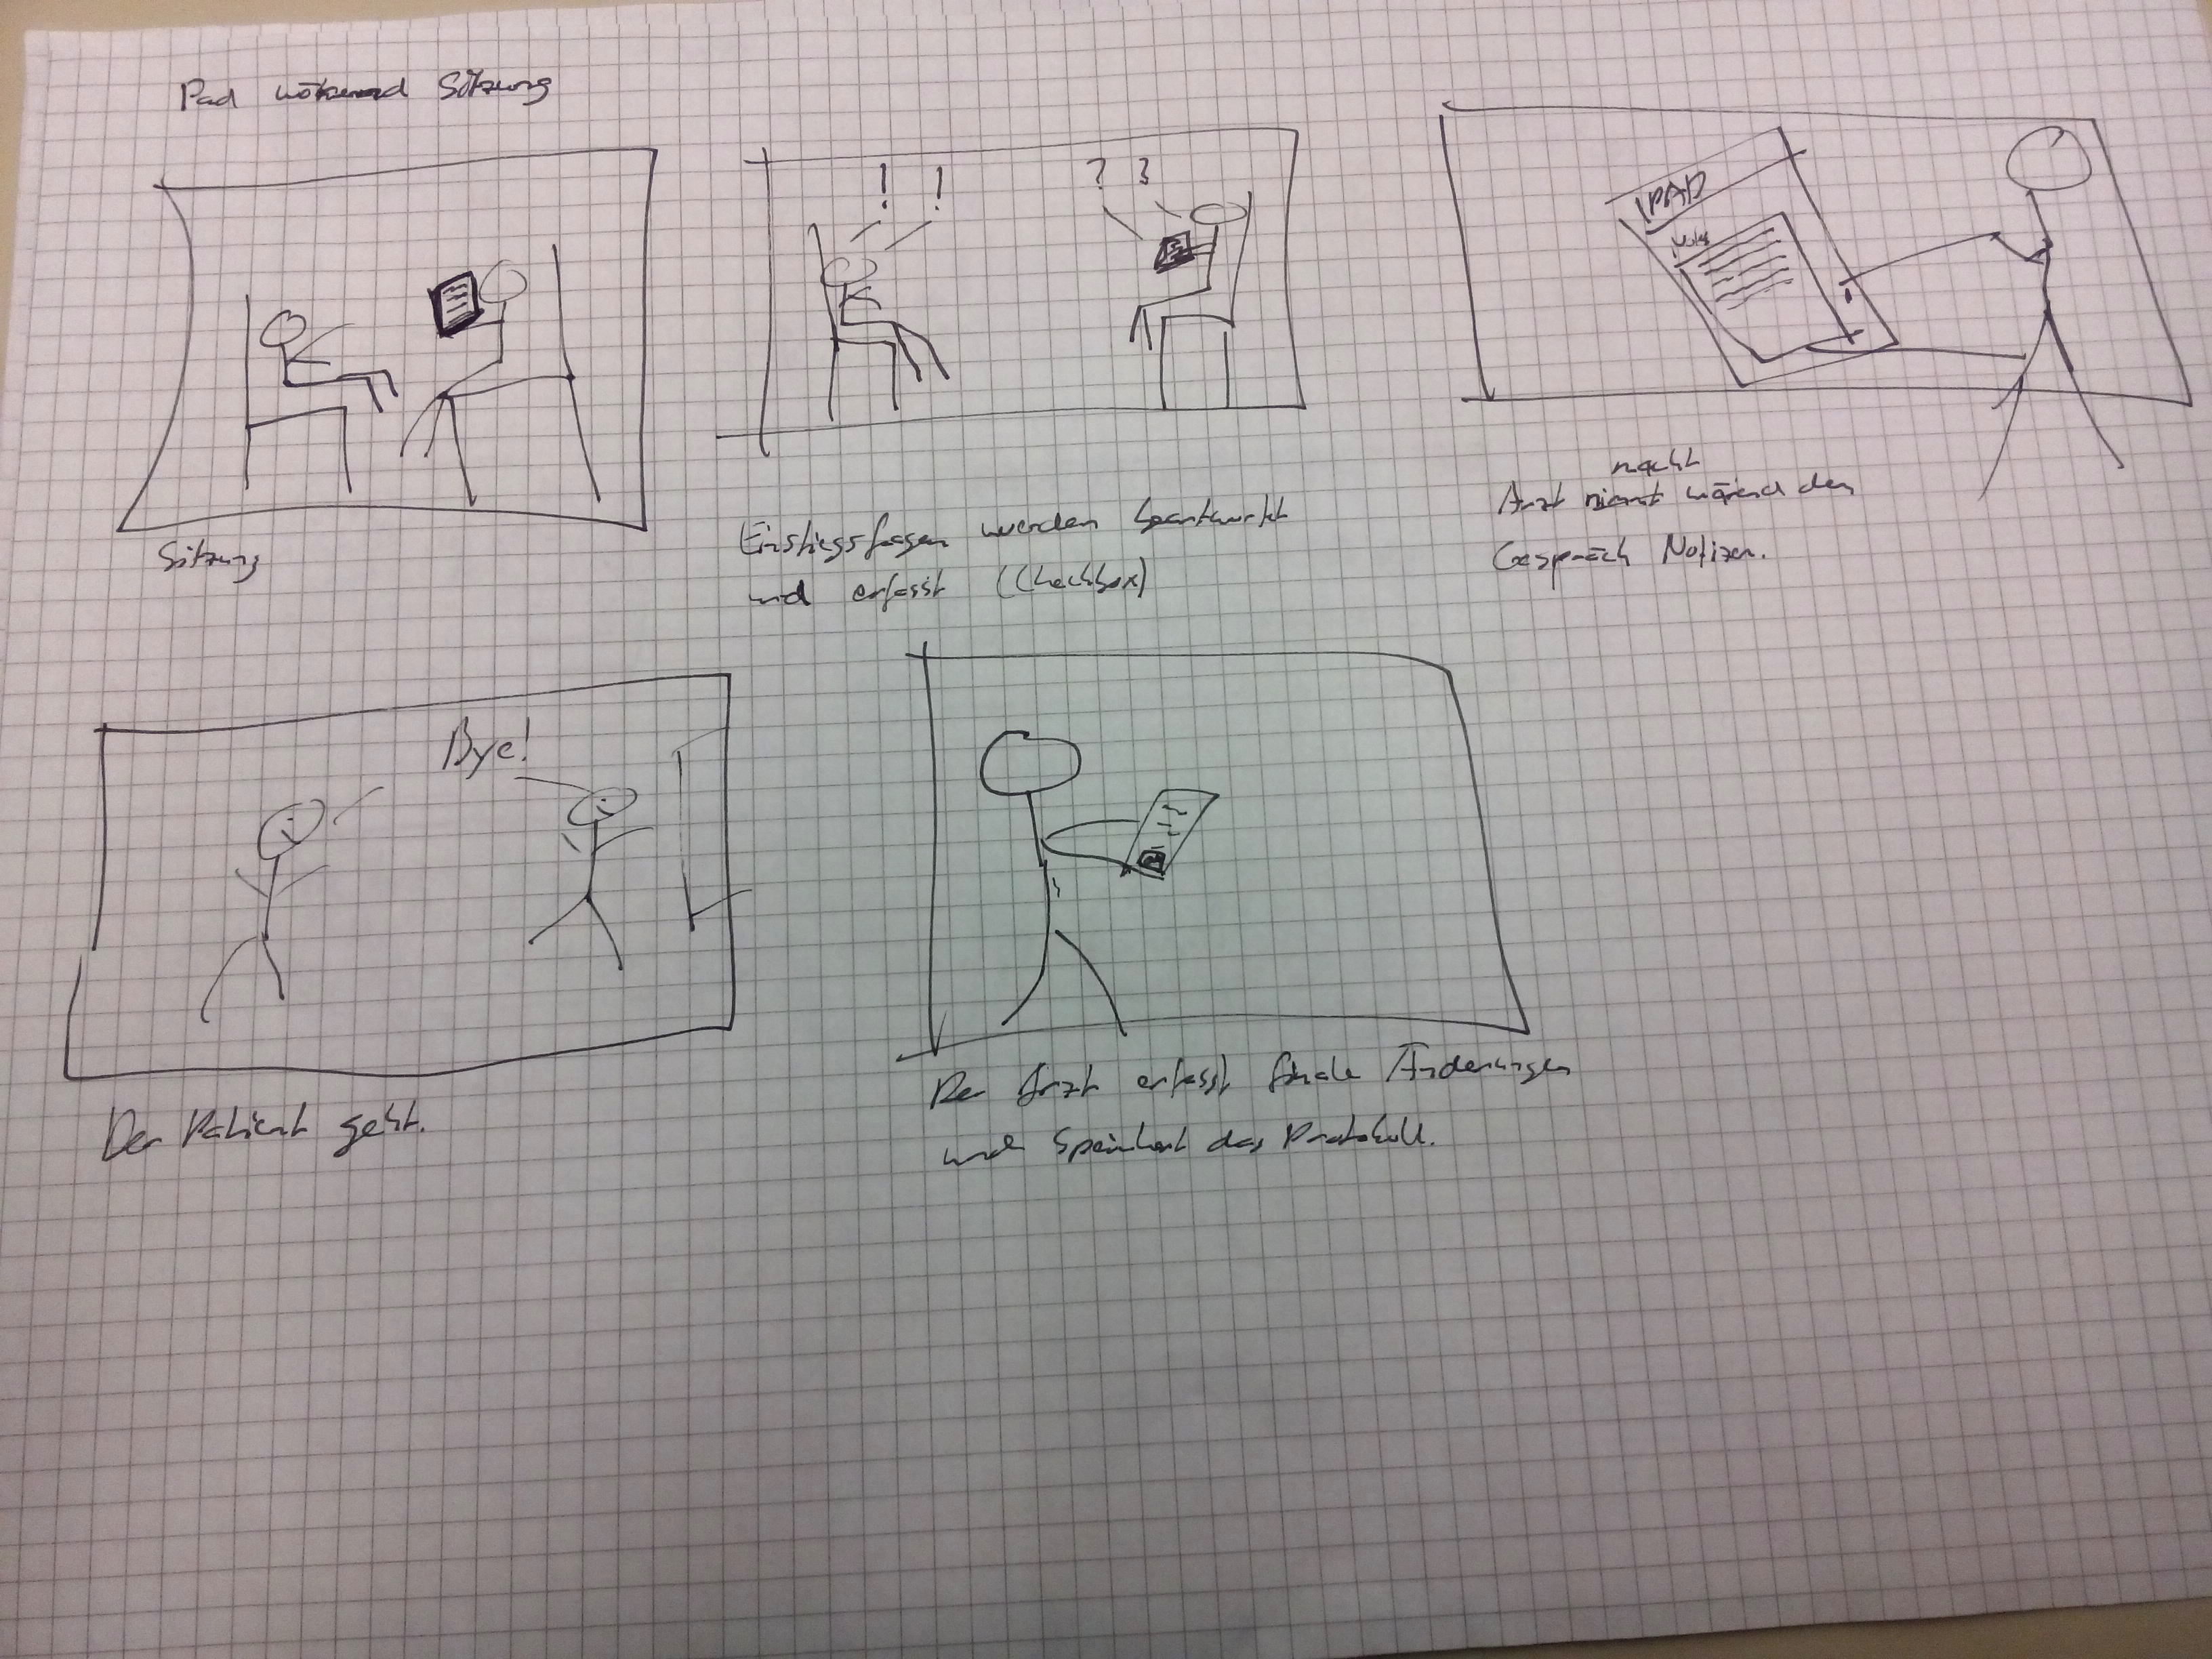 Pad während Sitzung
! !
? ?
IPAD
Notes
Sitzung
Einstiegsfragen werden beantwortet
und erfasst (Checkbox)
macht
Arzt nimmt wärend den
Gespräch Notizen.
Bye!
Der Patient geht.
Der Arzt erfasst finale Änderungen
und Speichert das Protokoll.